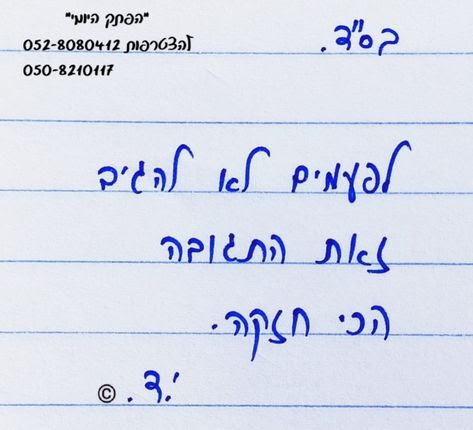 "הפתק היומי"
להצטרפות 052-8080412
050-8210117
בס"ד.
לפעמים לא להגיב
זאת התגובה
הכי חזקה.
י.ד. ©